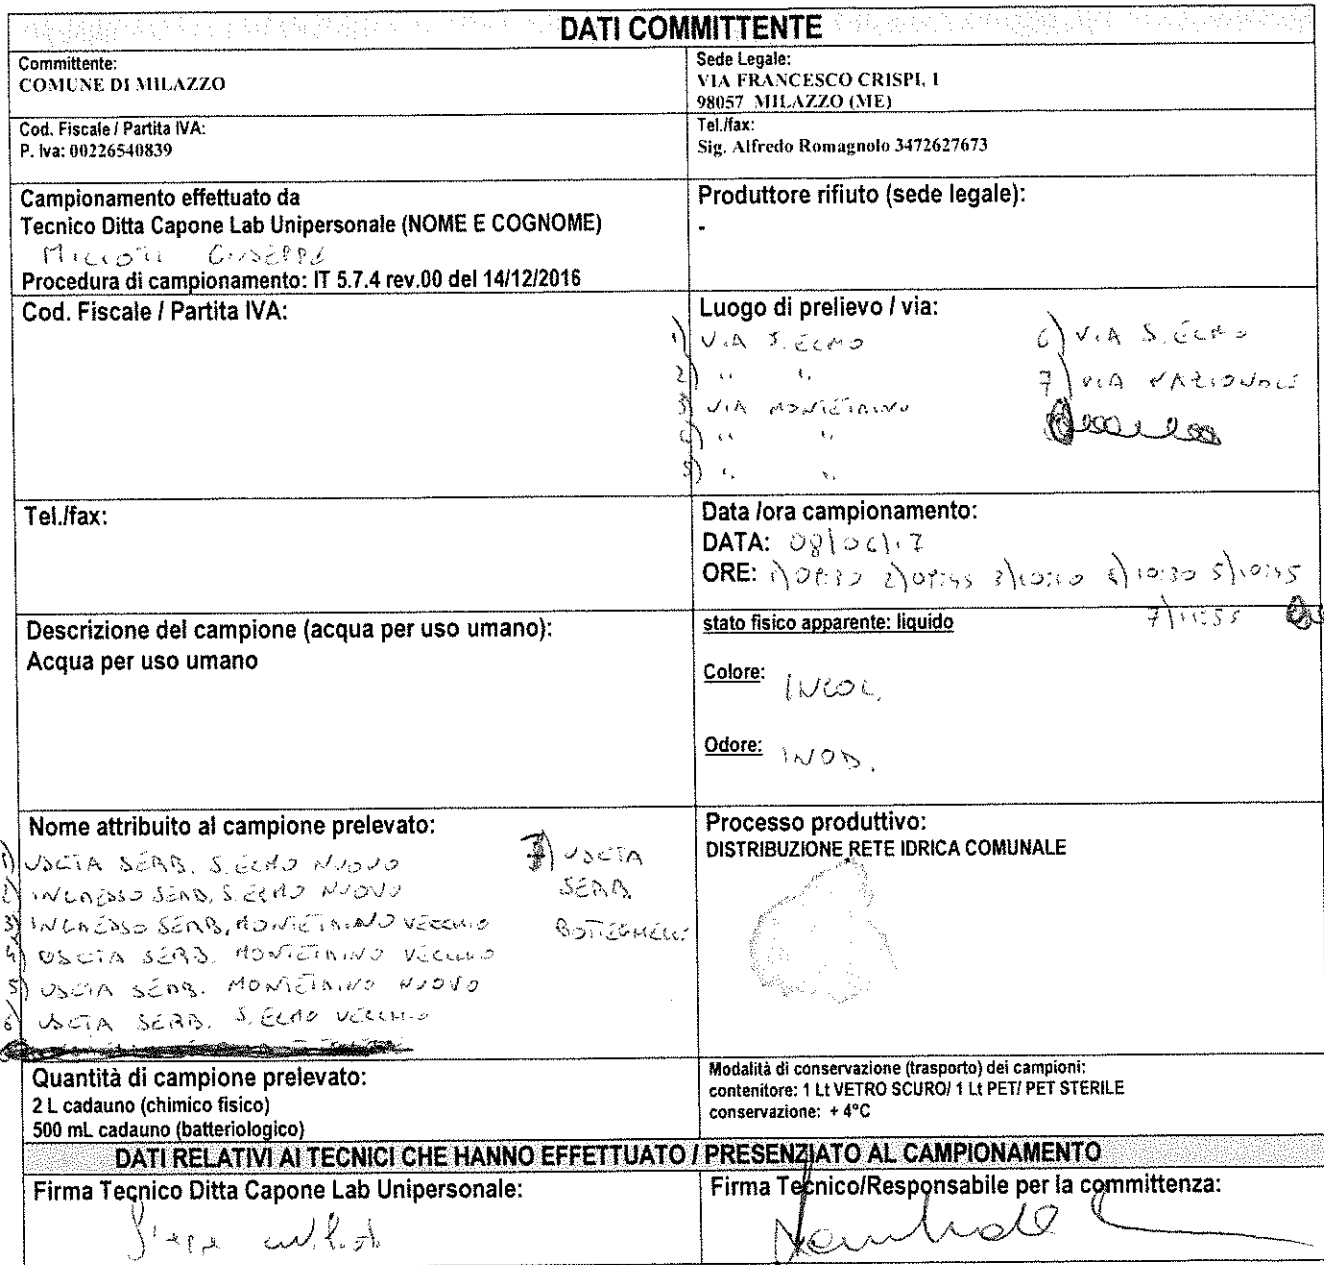 DATI COMMITTENTE
Committente:
COMUNE DI MILAZZO
Sede Legale:
VIA FRANCESCO CRISPI, 1
98057 MILAZZO (ME)
Cod. Fiscale / Partita IVA:
P. Iva: 00226540839
Tel./fax:
Sig. Alfredo Romagnolo 3472627673
Campionamento effettuato da
Tecnico Ditta Capone Lab Unipersonale (NOME E COGNOME)
GIUSEPPE
Procedura di campionamento: IT 5.7.4 rev.00 del 14/12/2016
Produttore rifiuto (sede legale):
-
Cod. Fiscale / Partita IVA:
Luogo di prelievo / via:
1) VIA S. ELMO
2) " "
3) VIA MONTETRINO
4) " "
5) " "
6) VIA S. ELMO
7) VIA NAZIONALE
Tel./fax:
Data /ora campionamento:
DATA: 08/06/17
ORE: 1) 09:30 2) 09:45 3) 10:10 4) 10:30 5) 10:45
7) 11:55
Descrizione del campione (acqua per uso umano):
Acqua per uso umano
stato fisico apparente: liquido
Colore: INCOL.
Odore: INOD.
Nome attribuito al campione prelevato:
1) USCITA SERB. S. ELMO NUOVO
2) INGRESSO SERB. S. ELMO NUOVO
3) INGRESSO SERB. MONTETRINO VECCHIO
4) USCITA SERB. MONTETRINO VECCHIO
5) USCITA SERB. MONTETRINO NUOVO
6) USCITA SERB. S. ELMO VECCHIO
7) USCITA
SERB.
Processo produttivo:
DISTRIBUZIONE RETE IDRICA COMUNALE
Quantità di campione prelevato:
2 L cadauno (chimico fisico)
500 mL cadauno (batteriologico)
Modalità di conservazione (trasporto) dei campioni:
contenitore: 1 Lt VETRO SCURO/ 1 Lt PET/ PET STERILE
conservazione: + 4°C
DATI RELATIVI AI TECNICI CHE HANNO EFFETTUATO / PRESENZIATO AL CAMPIONAMENTO
Firma Tecnico Ditta Capone Lab Unipersonale:
Firma Tecnico/Responsabile per la committenza: